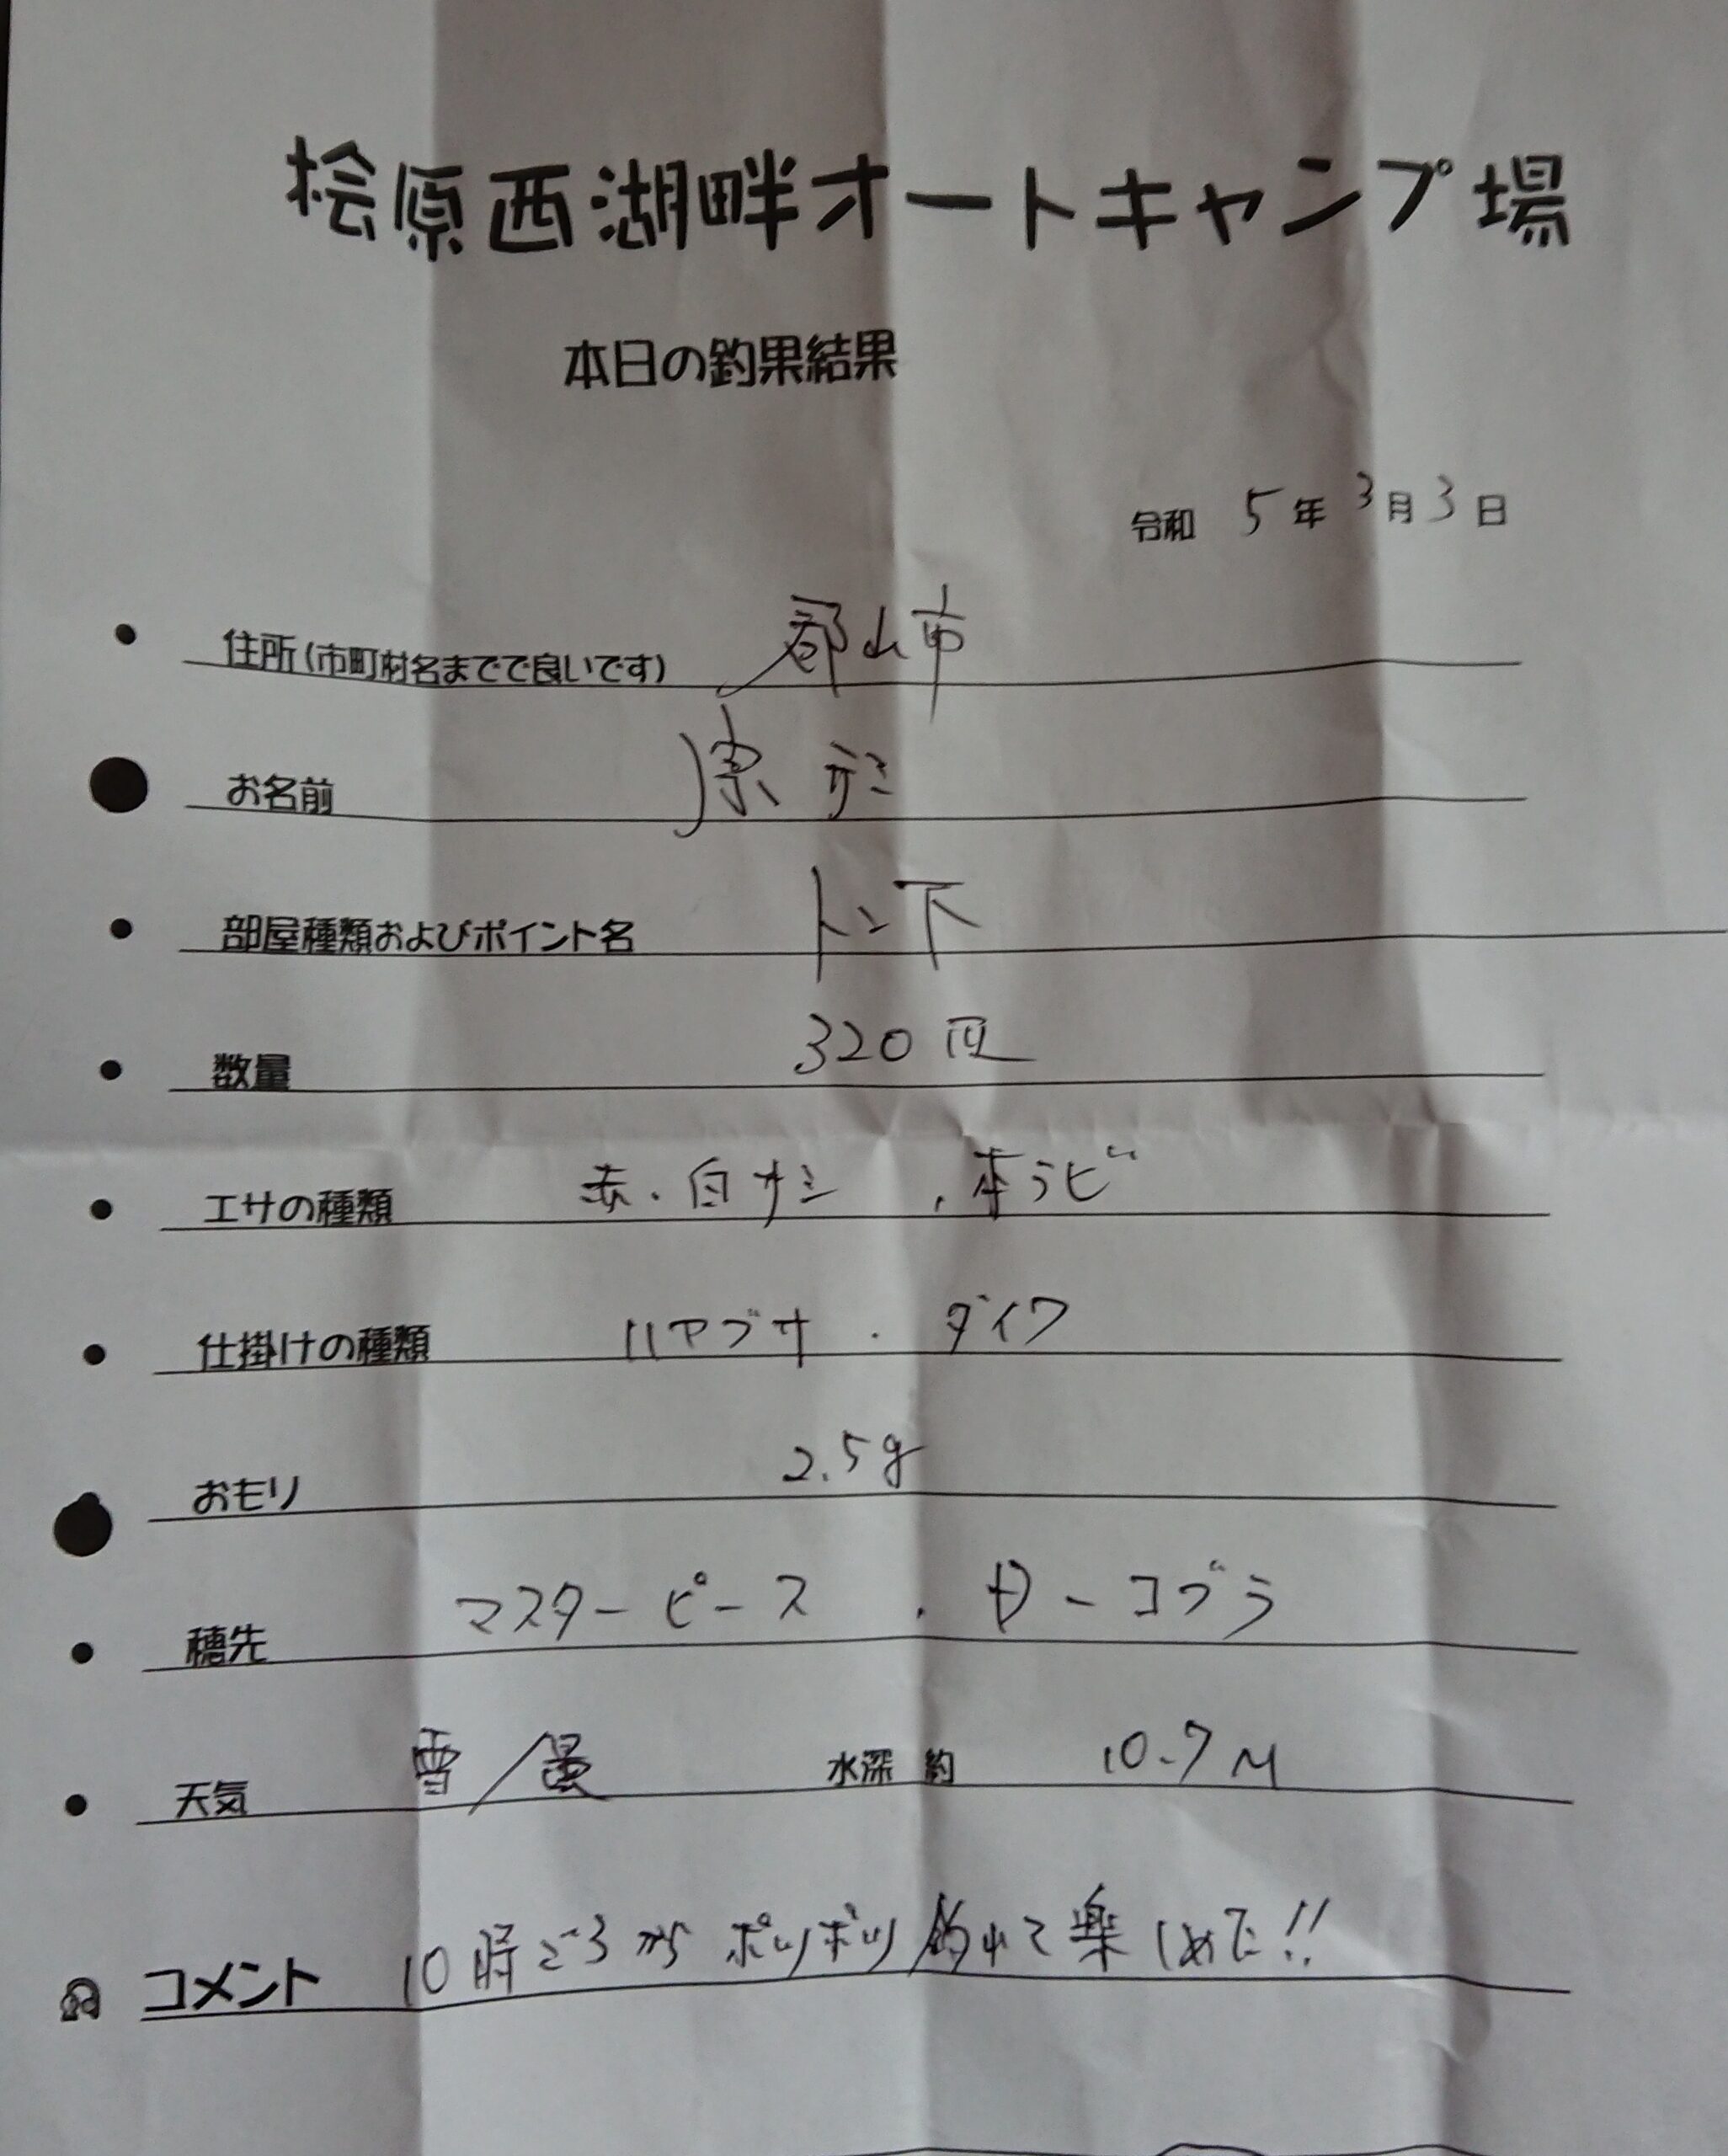 桧原西湖畔オートキャンプ場
本日の釣果結果
令和 5年 3月 3日
住所(市町村名までで良いです) 郡山市
お名前 原
部屋種類およびポイント名 トン下
数量 320匹
エサの種類 赤・白サシ、本ラビ
仕掛けの種類 ハヤブサ・ダイワ
おもり 2.5g
穂先 マスターピース・D-コブラ
天気 雪/曇 水深 約 10.7M
コメント 10時ごろからポツリポツリ釣れて楽しめた!!